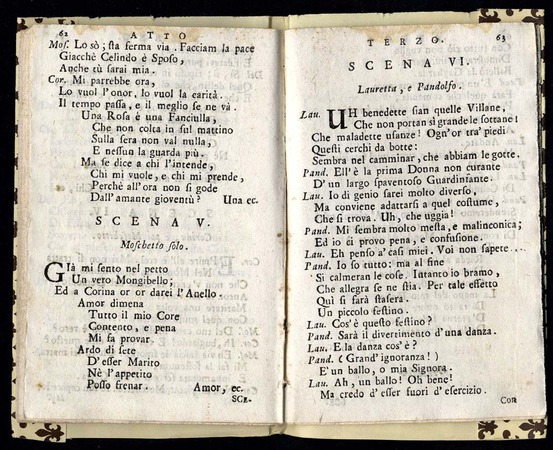 62 ATTO
Mos. Lo sò; sta ferma via. Facciam la pace
Giacchè Celindo è Sposo,
Anche tù sarai mia.
Cor. Mi parrebbe ora,
Lo vuol l'onor, lo vuol la carità.
Il tempo passa, e il meglio se ne và.
Una Rosa è una Fanciulla,
Che non colta in sul mattino
Sulla sera non val nulla,
E nessun la guarda più.
Ma se dice a chi l'intende,
Chi mi vuole, e chi mi prende,
Perchè all'ora non si gode
Dall'amante gioventù? Una ec.
SCENA V.
Moschetto solo.
GIà mi sento nel petto
Un vero Mongibello;
Ed a Corina or or darei l'Anello.
Amor dimena
Tutto il mio Core
Contento, e pena
Mi fa provar.
Ardo di sete
D'esser Marito
Nè l'appetito
Posso frenar. Amor, ec.
SCE-
TERZO. 63
SCENA VI.
Lauretta, e Pandolfo.
Lau. UH benedette sian quelle Villane,
Che non portan sì grande le sottane!
Che maladette usanze! Ogn'or tra' piedi
Questi cerchi da botte:
Sembra nel camminar, che abbiam le gotte.
Pand. Ell'è la prima Donna non curante
D'un largo spaventoso Guardinfante.
Lau. Io di genio sarei molto diverso,
Ma conviene adattarsi a quel costume,
Che si trova. Uh, che uggia!
Pand. Mi sembra molto mesta, e malinconica;
Ed io ci provo pena, e confusione.
Lau. Eh penso a' casi miei. Voi non sapete...
Pand. Io so tutto: ma al fine
Si calmeran le cose. Intanto io bramo,
Che allegra se ne stia. Per tale effetto
Quì si farà stasera.
Un piccolo festino.
Lau. Cos'è questo festino?
Pand. Sarà il divertimento d'una danza.
Lau. E la danza cos'è?
Pand. (Grand'ignoranza!)
E' un ballo, o mia Signora.
Lau. Ah, un ballo! Oh bene!
Ma credo d'esser fuori d'esercizio.
Con